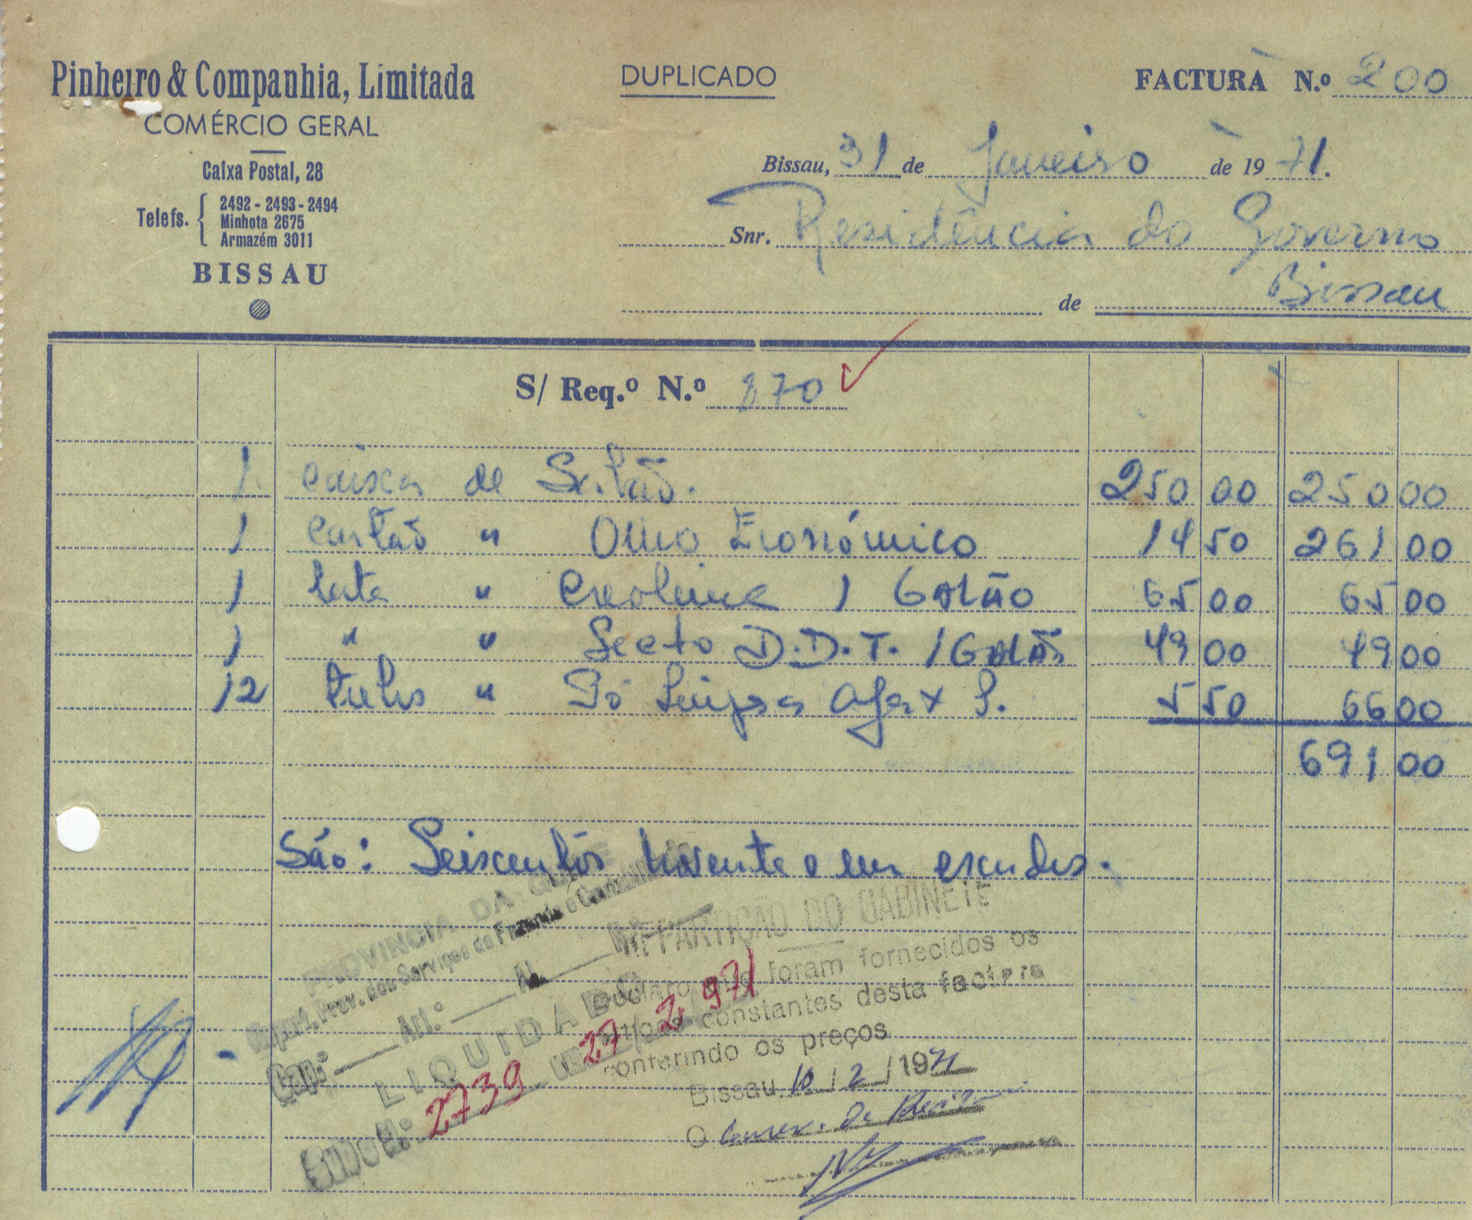 Pinheiro & Companhia, Limitada
COMÉRCIO GERAL
Caixa Postal, 28
Telefs. 2492 - 2493 - 2494
Minhota 2675
Armazém 3011
BISSAU
DUPLICADO
FACTURA N.º 200
Bissau, 31 de Janeiro de 1971.
Snr. Residência do Governo
de Bissau
S/ Req.º N.º 270
1 caixa de 250 00 250 00
1 cartão " Omo Económico 14 50 261 00
1 lata " Creolina 1 Galão 65 00 65 00
1 " " Secto D.D.T. 1 Galão 49 00 49 00
12 tubos " Pó Limpeza Ajax P. 5 50 66 00
691 00
São: Seiscentos noventa e um escudos.
PROVINCIA DA
Repart. Prov. dos Serviços de Fazenda e Contabilidade
Cap.º Art.º N.
LIQUIDADO
2739 27 2 971
REPARTIÇÃO DO GABINETE
Declaro que foram fornecidos os
artigos constantes desta factura
conferindo os preços
Bissau 10/2/1971
O